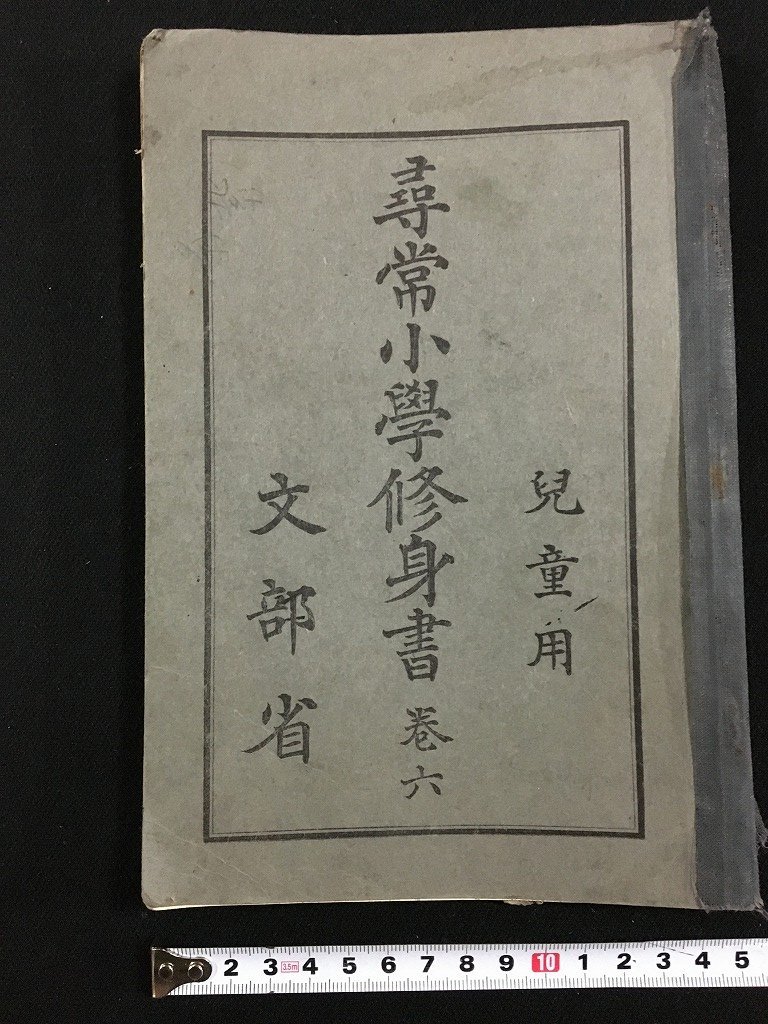 兒童用
尋常小學修身書 卷六
文部省
2 3 3.5m 4 5 6 7 8 9 10 1 2 3 4 5